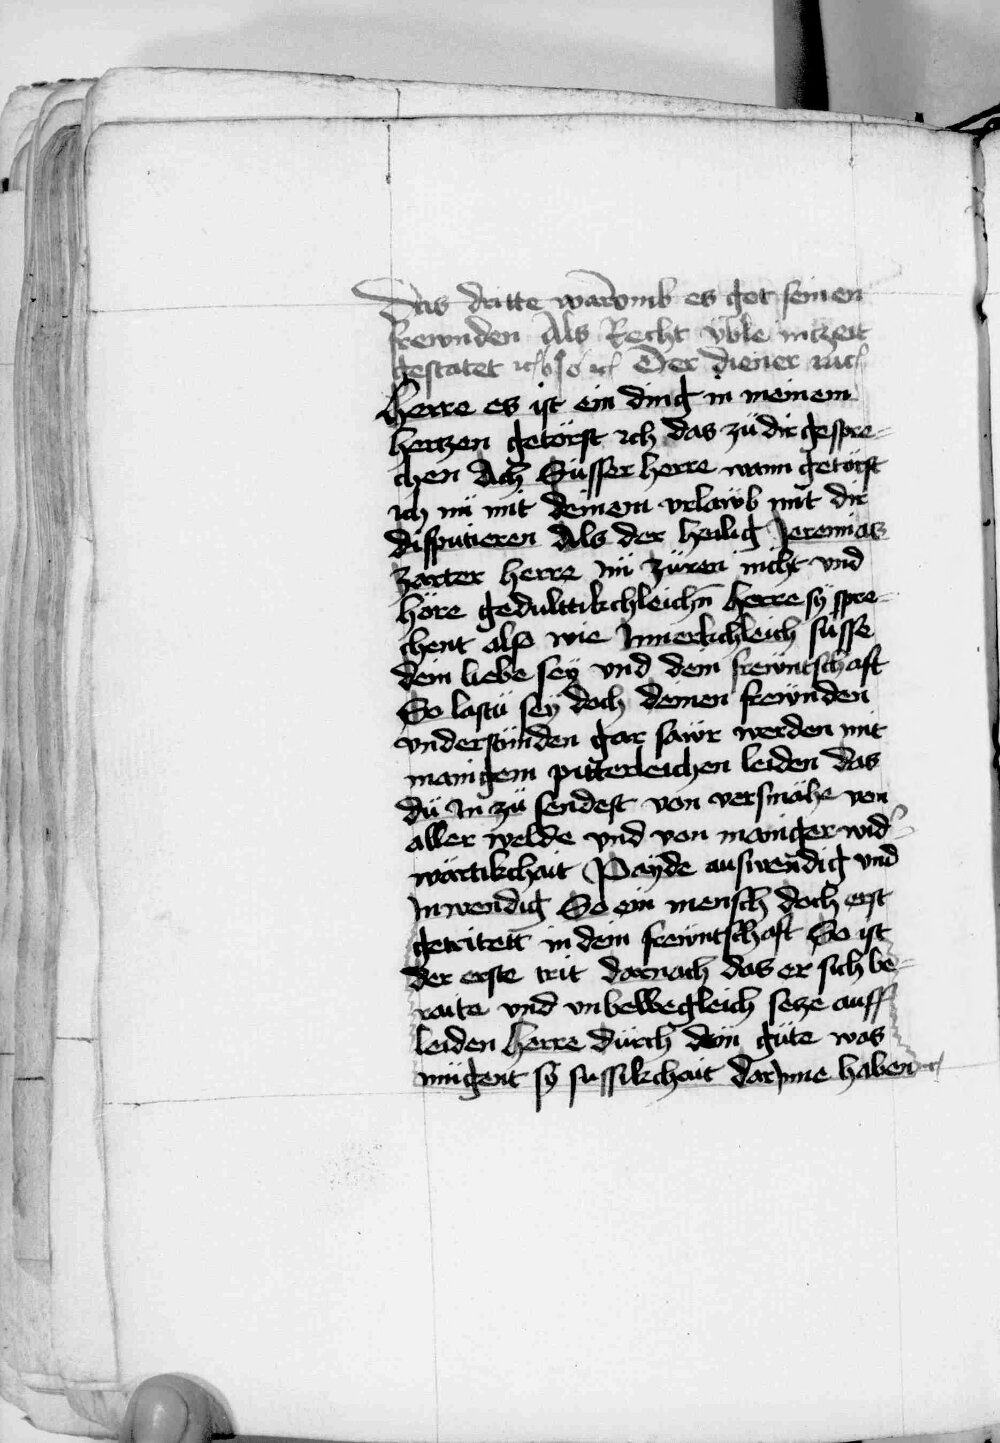 Das dritte waromb es got seinen
frewnden Als Recht vͤble inczeit
gestatet Der diener
Herre es ist ein ding in meinem
hertzen getörst ich das zü dir gespre-
chen Ach Süsser herre wann getörst
ich nü mit deinem vrlawb mit dir
disputieren Als der heilig Jeremias
zarter herre nü züren nicht vnd
höre gedultikchleichn̄ herre sÿ spre-
chent also wie Innerkchleich süsse
dein liebe seÿ vnd dein frewntschaft
So lastü seÿ doch deinen frewnden
vnderstünden gar sawr werden mit
manigem pitterleichen leiden das
dü in zü sendest von versmähe von
aller welde vnd von maniger wid
wärtikchait Payde auswendig vnd
Inwendig So ein mensch doch erst
getritett in dein frewntschaft So ist
der erste trit darnach das er sich be-
raite vnd vnbewegleich secze auff
leiden herre dürch dein güte was
mügent sÿ süssikchait darynne haben